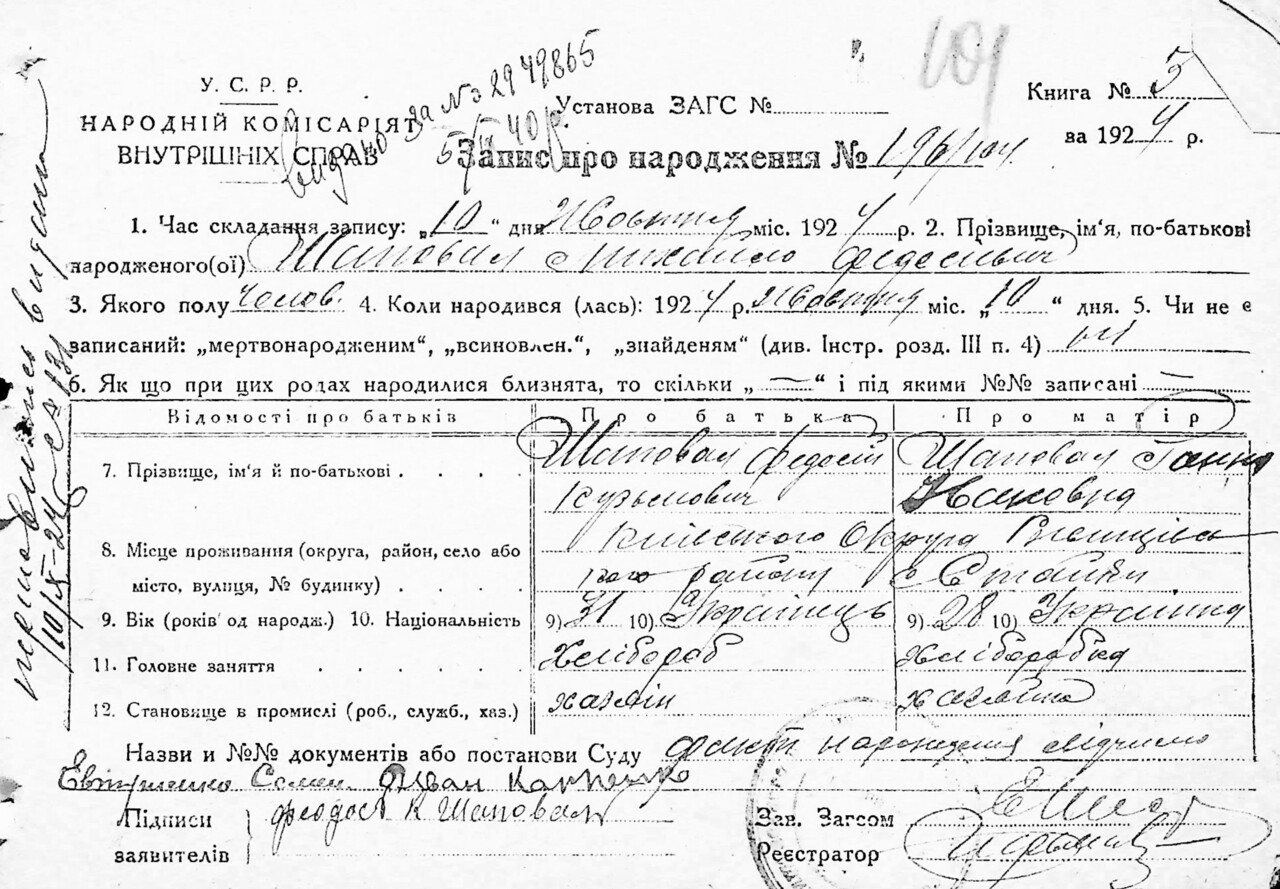 101
У. С. Р. Р.
НАРОДНІЙ КОМІСАРІЯТ
ВНУТРІШНІХ СПРАВ
Видано за № 2949865
5/ІІ 40р.
Установа ЗАГС №
Книга № 5
за 1924 р.
Запис про народження № 196/104
1. Час складання запису: „10“ дня Жовтня міс. 1924 р. 2. Прізвище, ім'я, по-батькові
народженого(ої) Шаповал Михайло Федосієвич
3. Якого полу чолов. 4. Коли народився (лась): 1924 р. Жовтня міс. „10“ дня. 5. Чи не є
записаний: „мертвонародженим“, „всиновлен.“, „знайденям“ (див. Інстр. розд. III п. 4) ні
6. Як що при цих родах народилися близнята, то скільки „—“ і під якими №№ записані —
Відомості про батьків Про батька Про матір
7. Прізвище, ім'я й по-батькові . . . Шаповал Федосій Шаповал Ганна
Кузьмович Яковна
8. Місце проживання (округа, район, село або Київського Округа
місто, вулиця, № будинку) . . . . району с Стайки
9. Вік (років од народж.) 10. Національність 9) 31 10) Українець 9) 28 10) Українка
11. Головне заняття . . . . . Хлібороб Хліборобка
12. Становище в промислі (роб., служб., хаз.) хазяїн хазяйка
Назви и №№ документів або постанови Суду факт нарождения
Іван
Підписи
заявителів
Феодосі К Шаповал
Зав. Загсом
Реєстратор
10/X-24